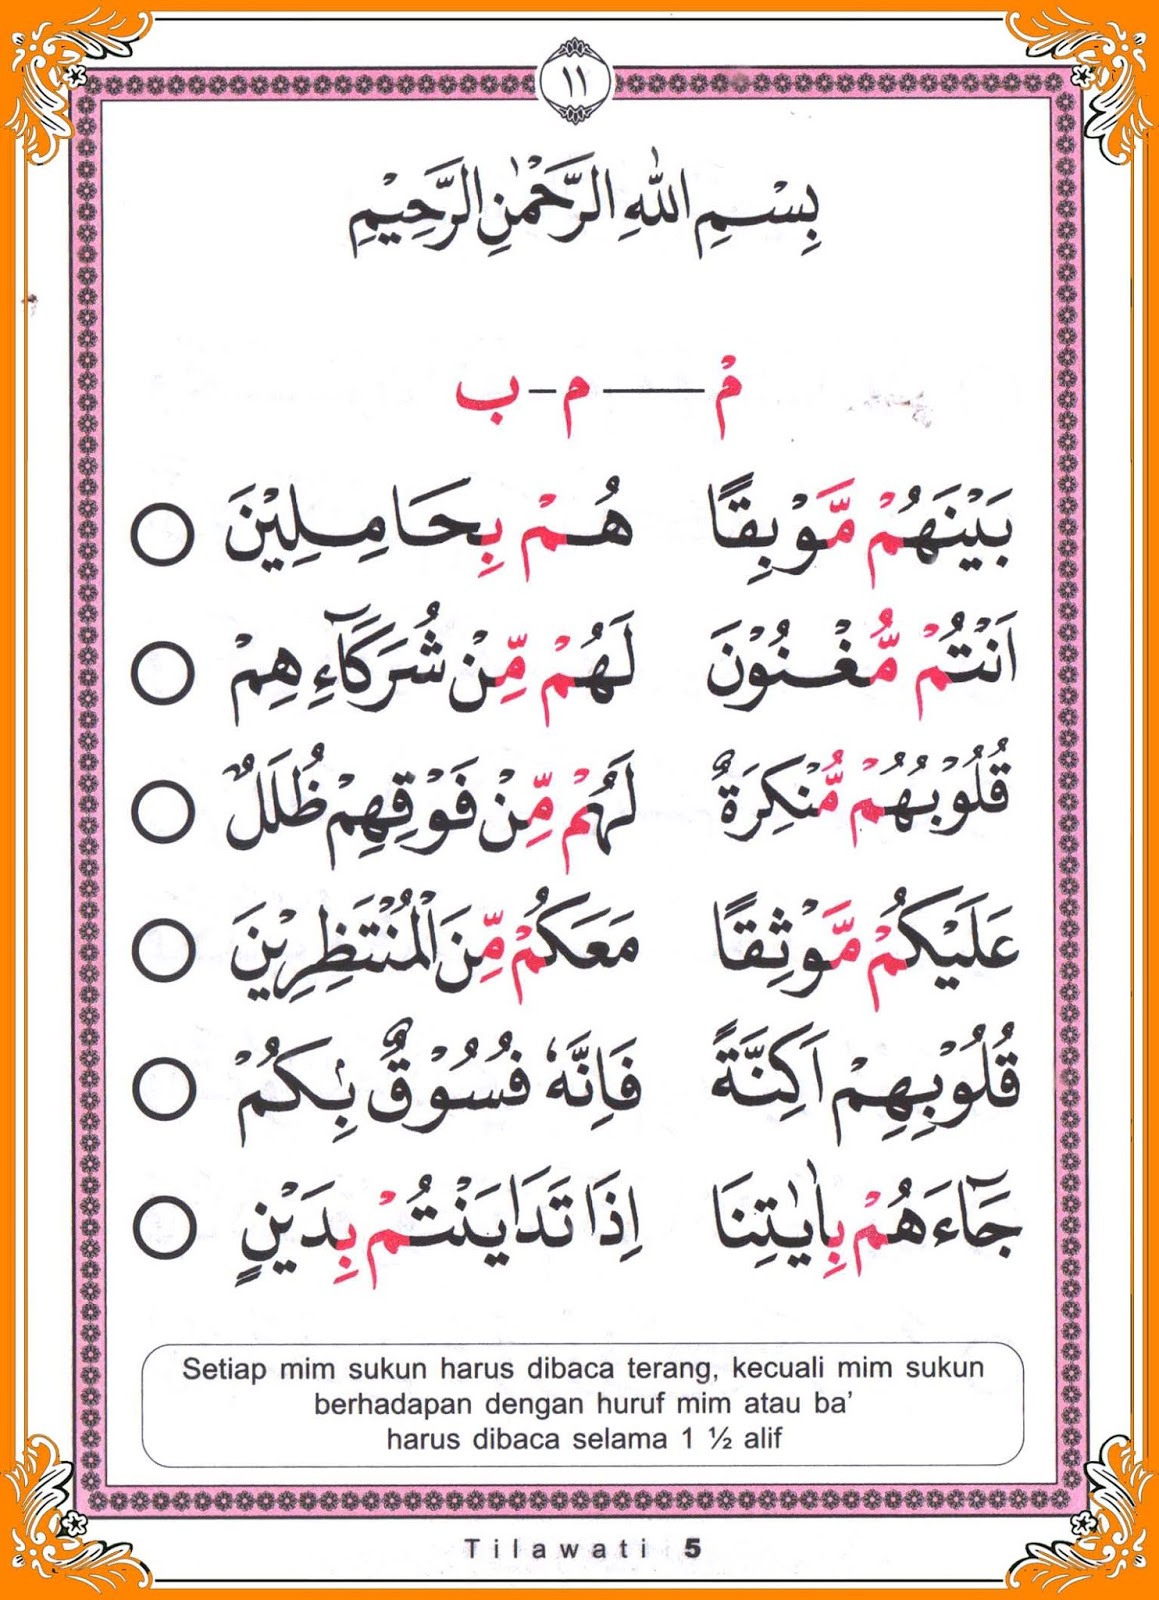 ١١
بِسْمِ اللهِ الرَّحْمٰنِ الرَّحِيْمِ
مْ ـــــ م ـ ب
بَيْنَهُمْ مَّوْبِقًا هُمْ بِحَامِلِيْنَ
اَنْتُمْ مُّغْنُوْنَ لَهُمْ مِّنْ شُرَكَآءِهِمْ
قُلُوْبُهُمْ مُّنْكِرَةٌ لَهُمْ مِّنْ فَوْقِهِمْ ظُلَلٌ
عَلَيْكُمْ مَّوْثِقًا مَعَكُمْ مِّنَ الْمُنْتَظِرِيْنَ
قُلُوْبِهِمْ اَكِنَّةً فَاِنَّهٗ فُسُوْقٌ بِكُمْ
جَآءَهُمْ بِاٰيٰتِنَا اِذَا تَدَايَنْتُمْ بِدَيْنٍ
Setiap mim sukun harus dibaca terang, kecuali mim sukun
berhadapan dengan huruf mim atau ba’
harus dibaca selama 1 ½ alif
Tilawati 5